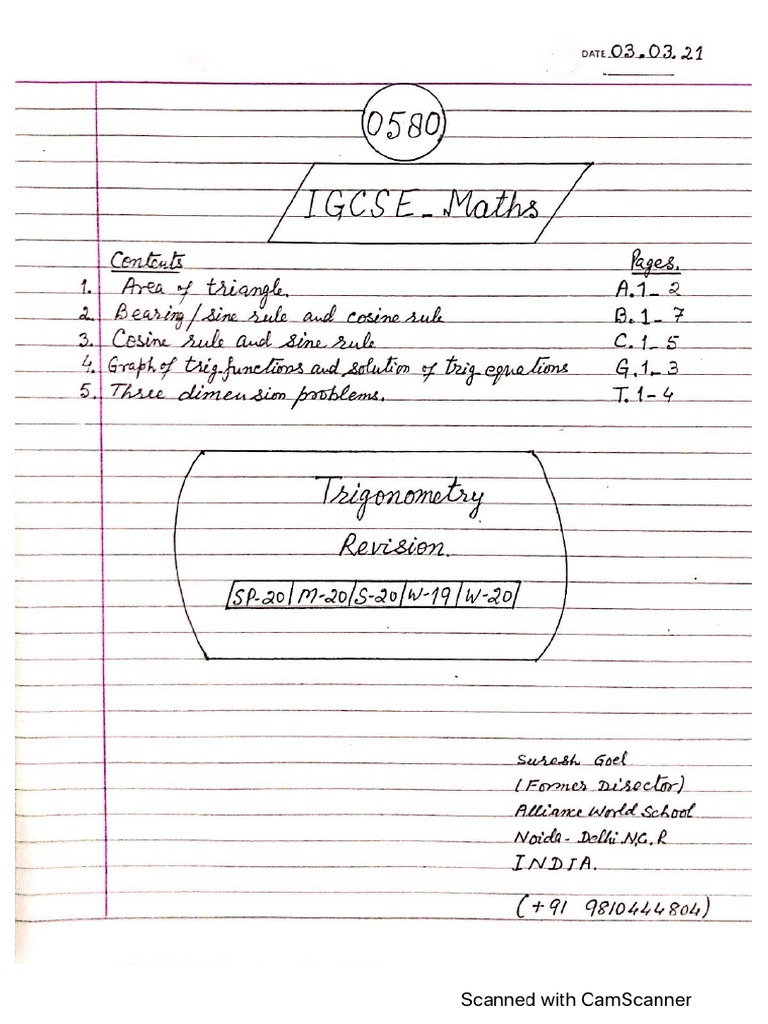 DATE 03.03.21
0580
IGCSE_Maths
Contents Pages.
1. Area of triangle. A.1_2
2. Bearing/sine rule and cosine rule B.1-7
3. Cosine rule and sine rule C.1_5
4. Graph of trig.functions and solution of trig equations G.1_3
5. Three dimension problems. T.1-4
Trigonometry
Revision.
SP-20|M-20|S-20|W-19|W-20
Suresh Goel
(Former Director)
Alliance World School
Noida- Delhi N.C.R
INDIA.
(+91 9810444804)
Scanned with CamScanner